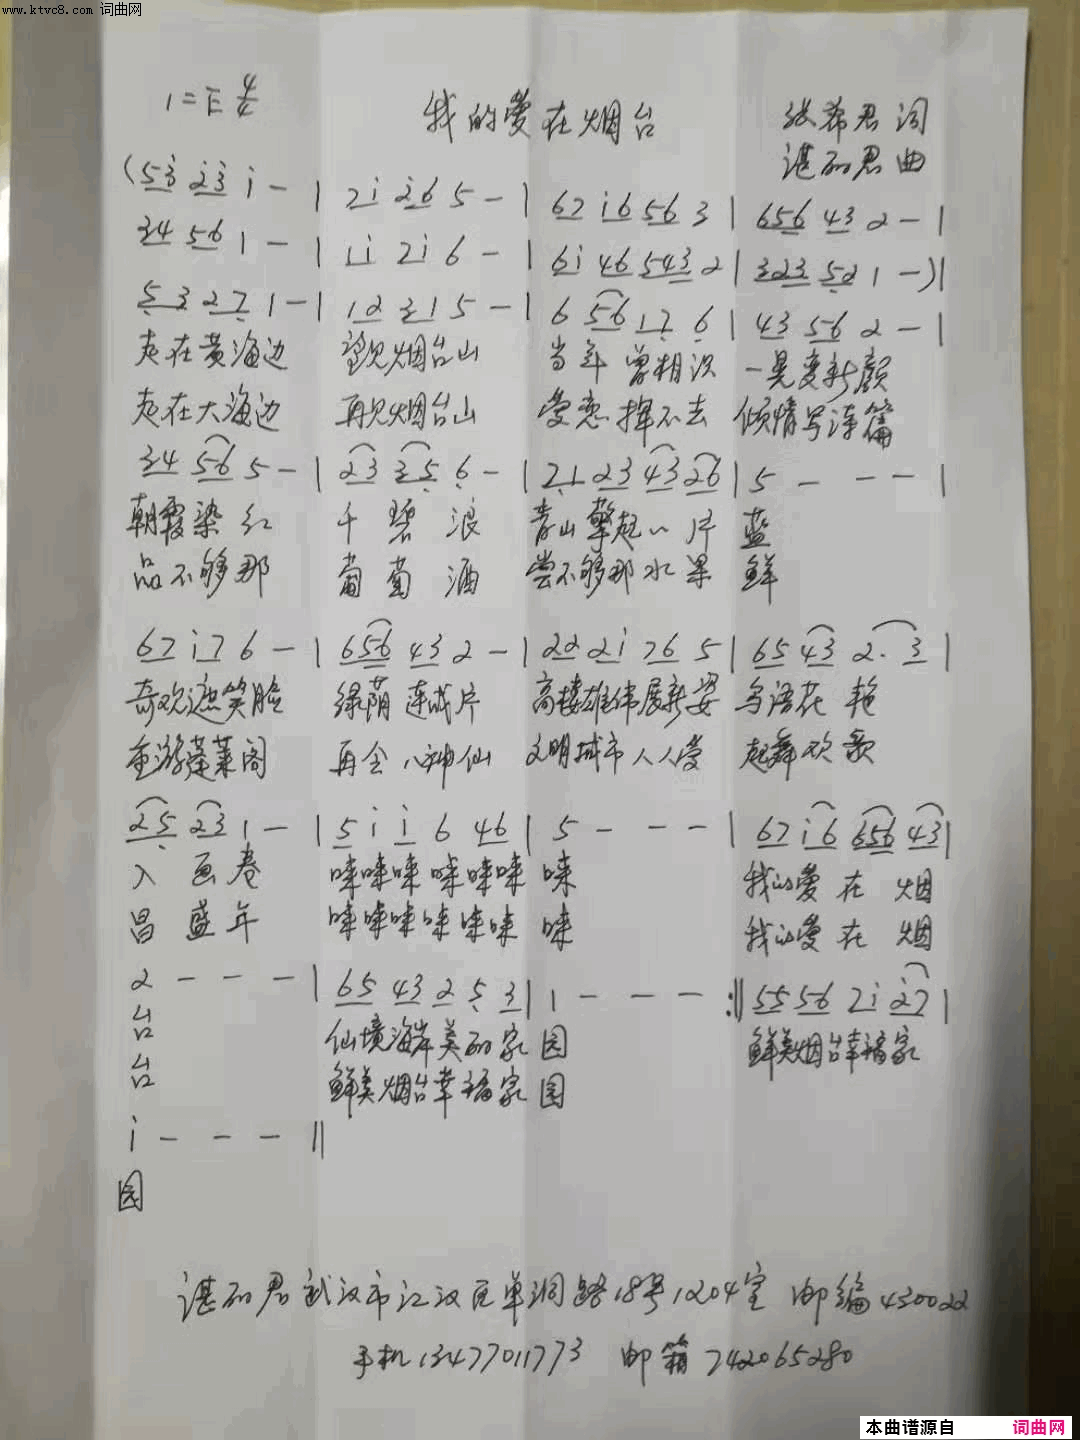 www.ktvc8.com 词曲网
1=E 4/4 我的爱在烟台 张希君 词
谌丽君 曲
(53 23 i - | 7i 26 5 - | 67 i6 56 3 | 656 43 2 - |
34 56 1 - | 1i 7i 6 - | 6i 46 543 2 | 323 521 - )|
53 27 1 - | 12 31 5 - | 6 56 17 6 | 43 56 2 - |
走在黄海边 望见烟台山 当年曾相识 一晃变新颜
走在大海边 再见烟台山 爱恋挥不去 倾情写诗篇
34 56 5 - | 23 35 6 - | 71 23 43 26 | 5 - - - |
朝霞染红 千碧浪 青山擎起一片 蓝
品不够那 葡萄酒 尝不够那水果 鲜
67 i7 6 - | 656 43 2 - | 22 2i 76 5 | 65 43 2· 3 |
奇欢遮笑脸 绿荫连成片 高楼雄伟展新姿 鸟语花艳
重游蓬莱阁 再会八神仙 文明城市人人爱 起舞欢歌
25 23 1 - | 5 i i 6 46 | 5 - - - | 67 i6 656 43 |
入画卷 唻唻唻唻唻唻 唻 我的爱在烟
昌盛年 唻唻唻唻唻唻 唻 我的爱在烟
2 - - - | 65 43 2 5 3 | 1 - - - :‖ 55 56 7i 27 |
台 仙境海岸美丽家 园 鲜美烟台幸福家
台 鲜美烟台幸福家 园
i - - - ‖
园
谌丽君 武汉市江汉区单洞路18号1204室 邮编430022
手机13477011773 邮箱742065280
本曲谱源自 词曲网